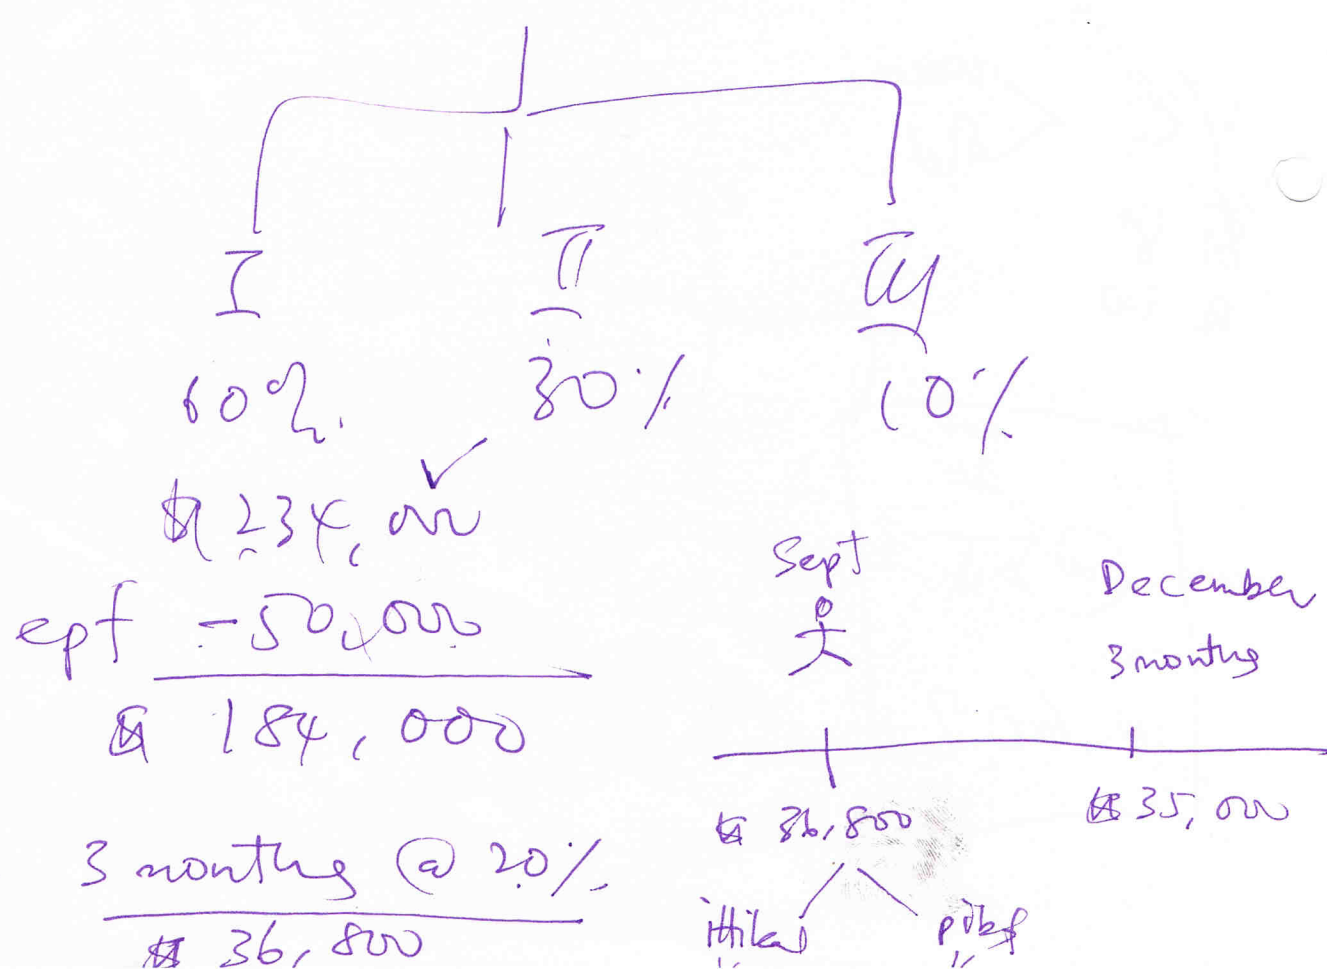 I II III
60%. 30% 10%
234,000
epf -50,000
184,000
3 months @ 20%
36,800
Sept
December
3 months
36,800
35,000